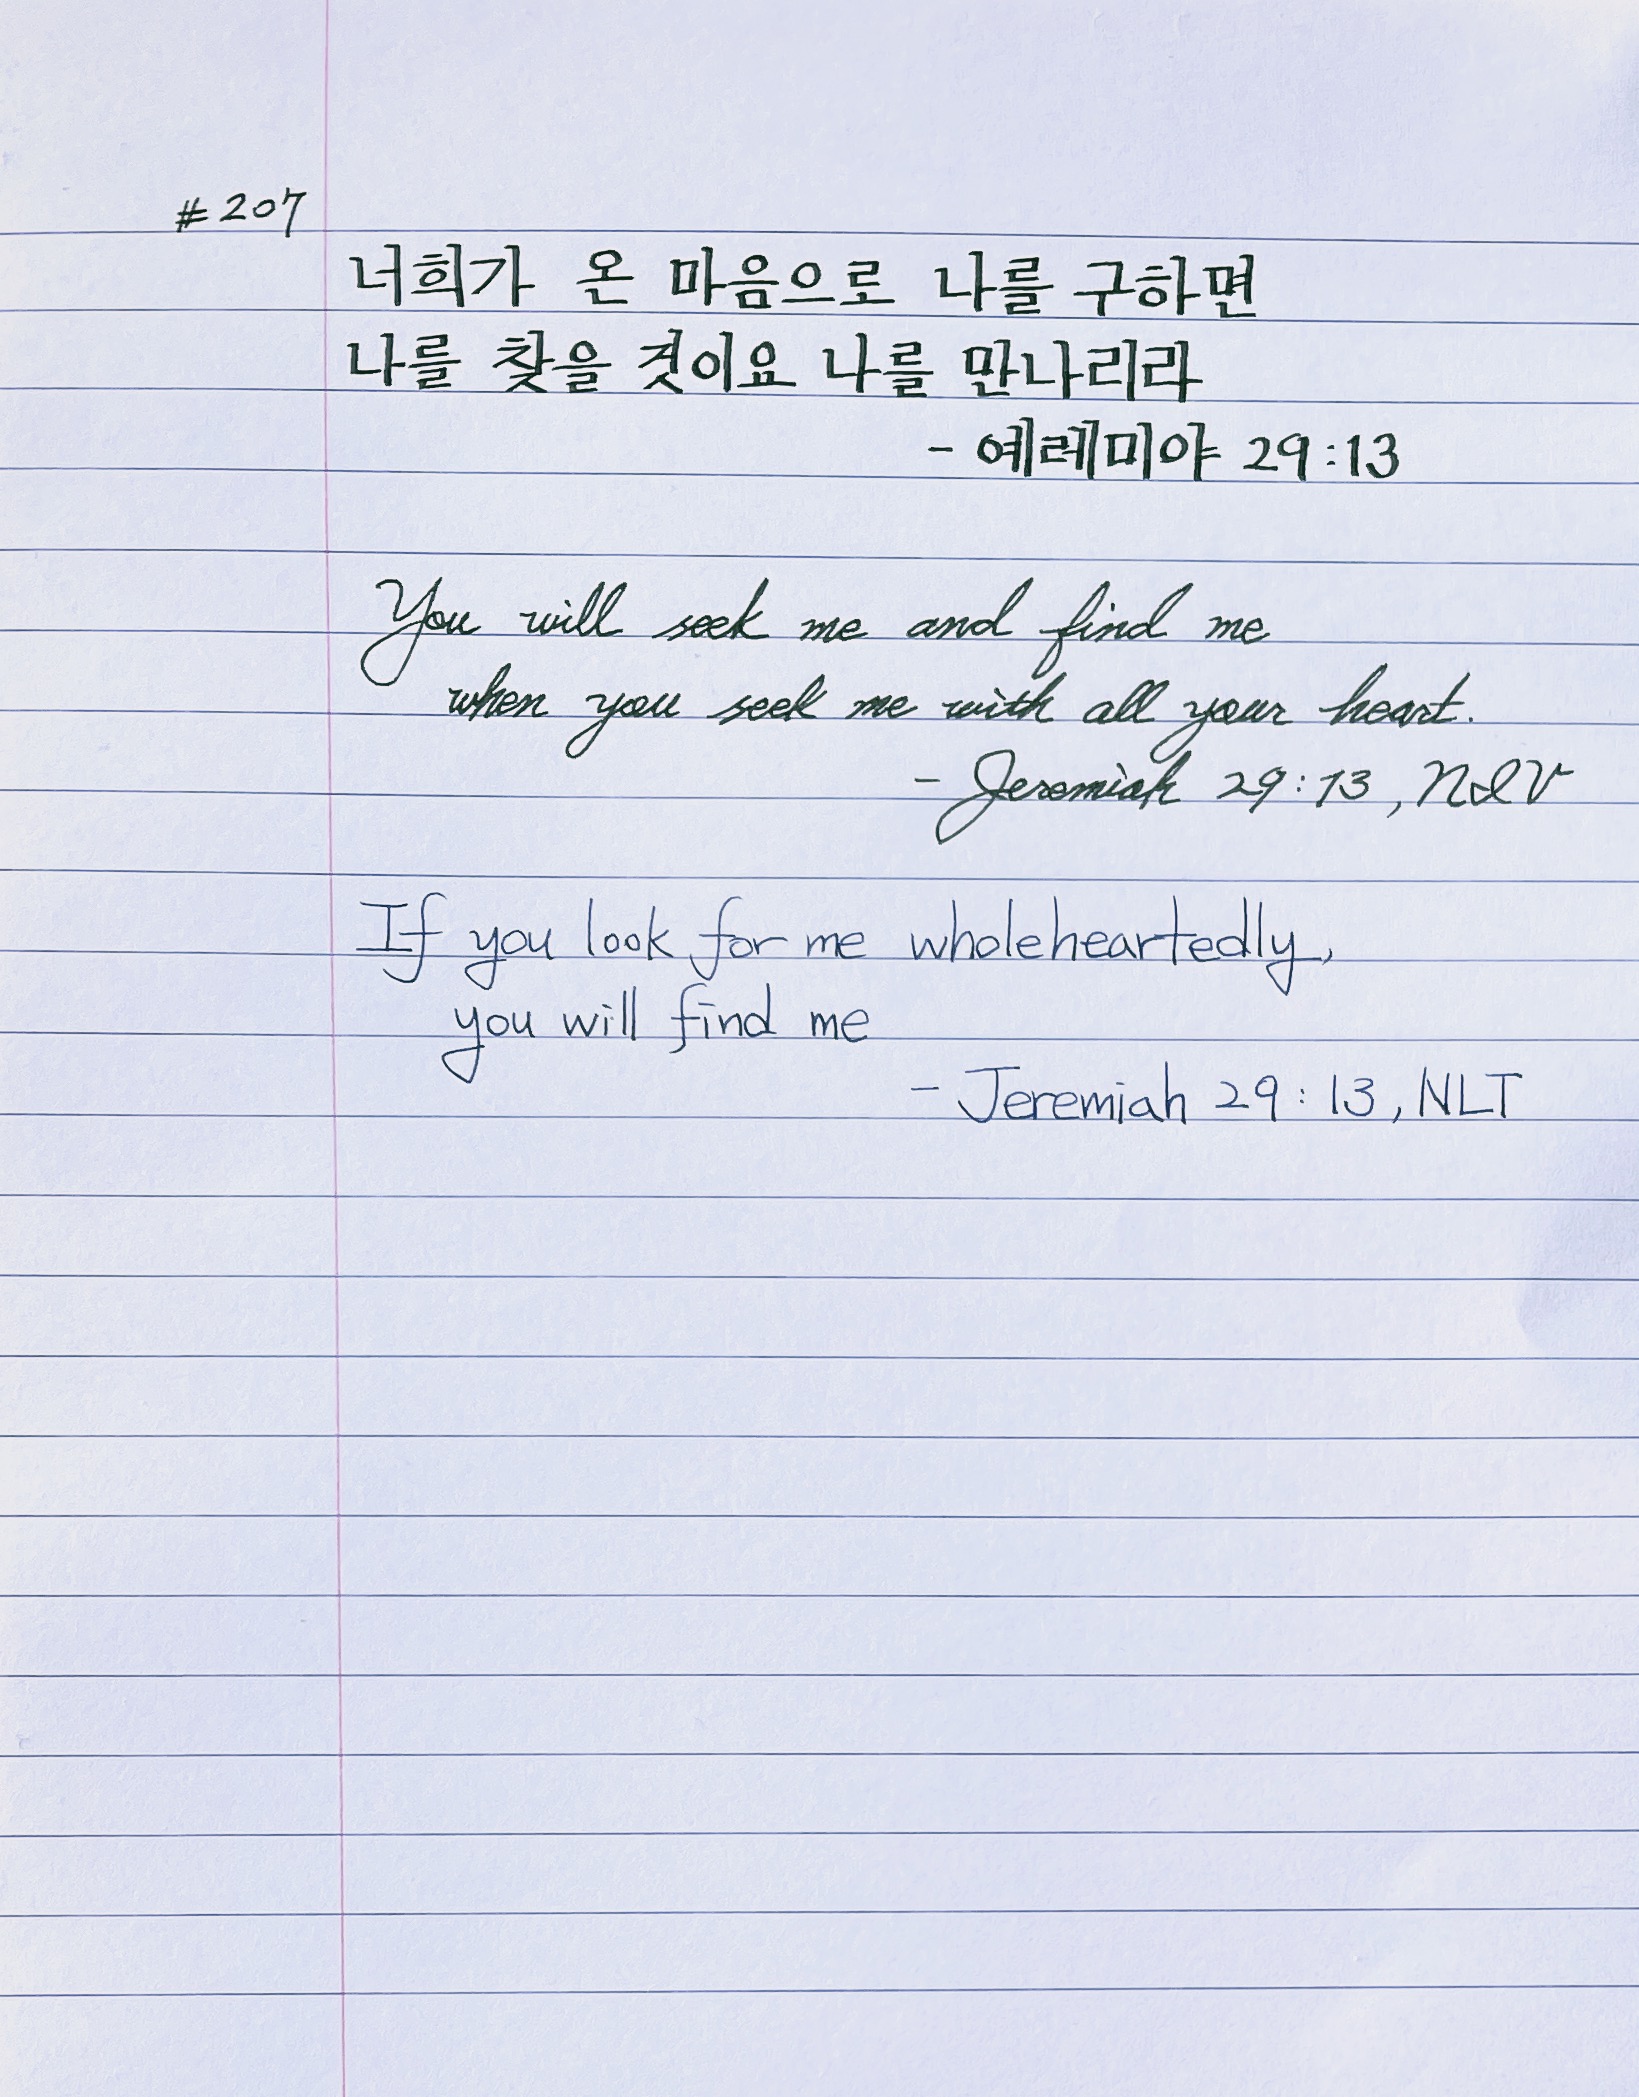 #207
너희가 온 마음으로 나를 구하면
나를 찾을 것이요 나를 만나리라
- 예레미야 29:13
You will seek me and find me
when you seek me with all your heart.
- Jeremiah 29:13, NIV
If you look for me wholeheartedly,
you will find me
- Jeremiah 29:13, NLT